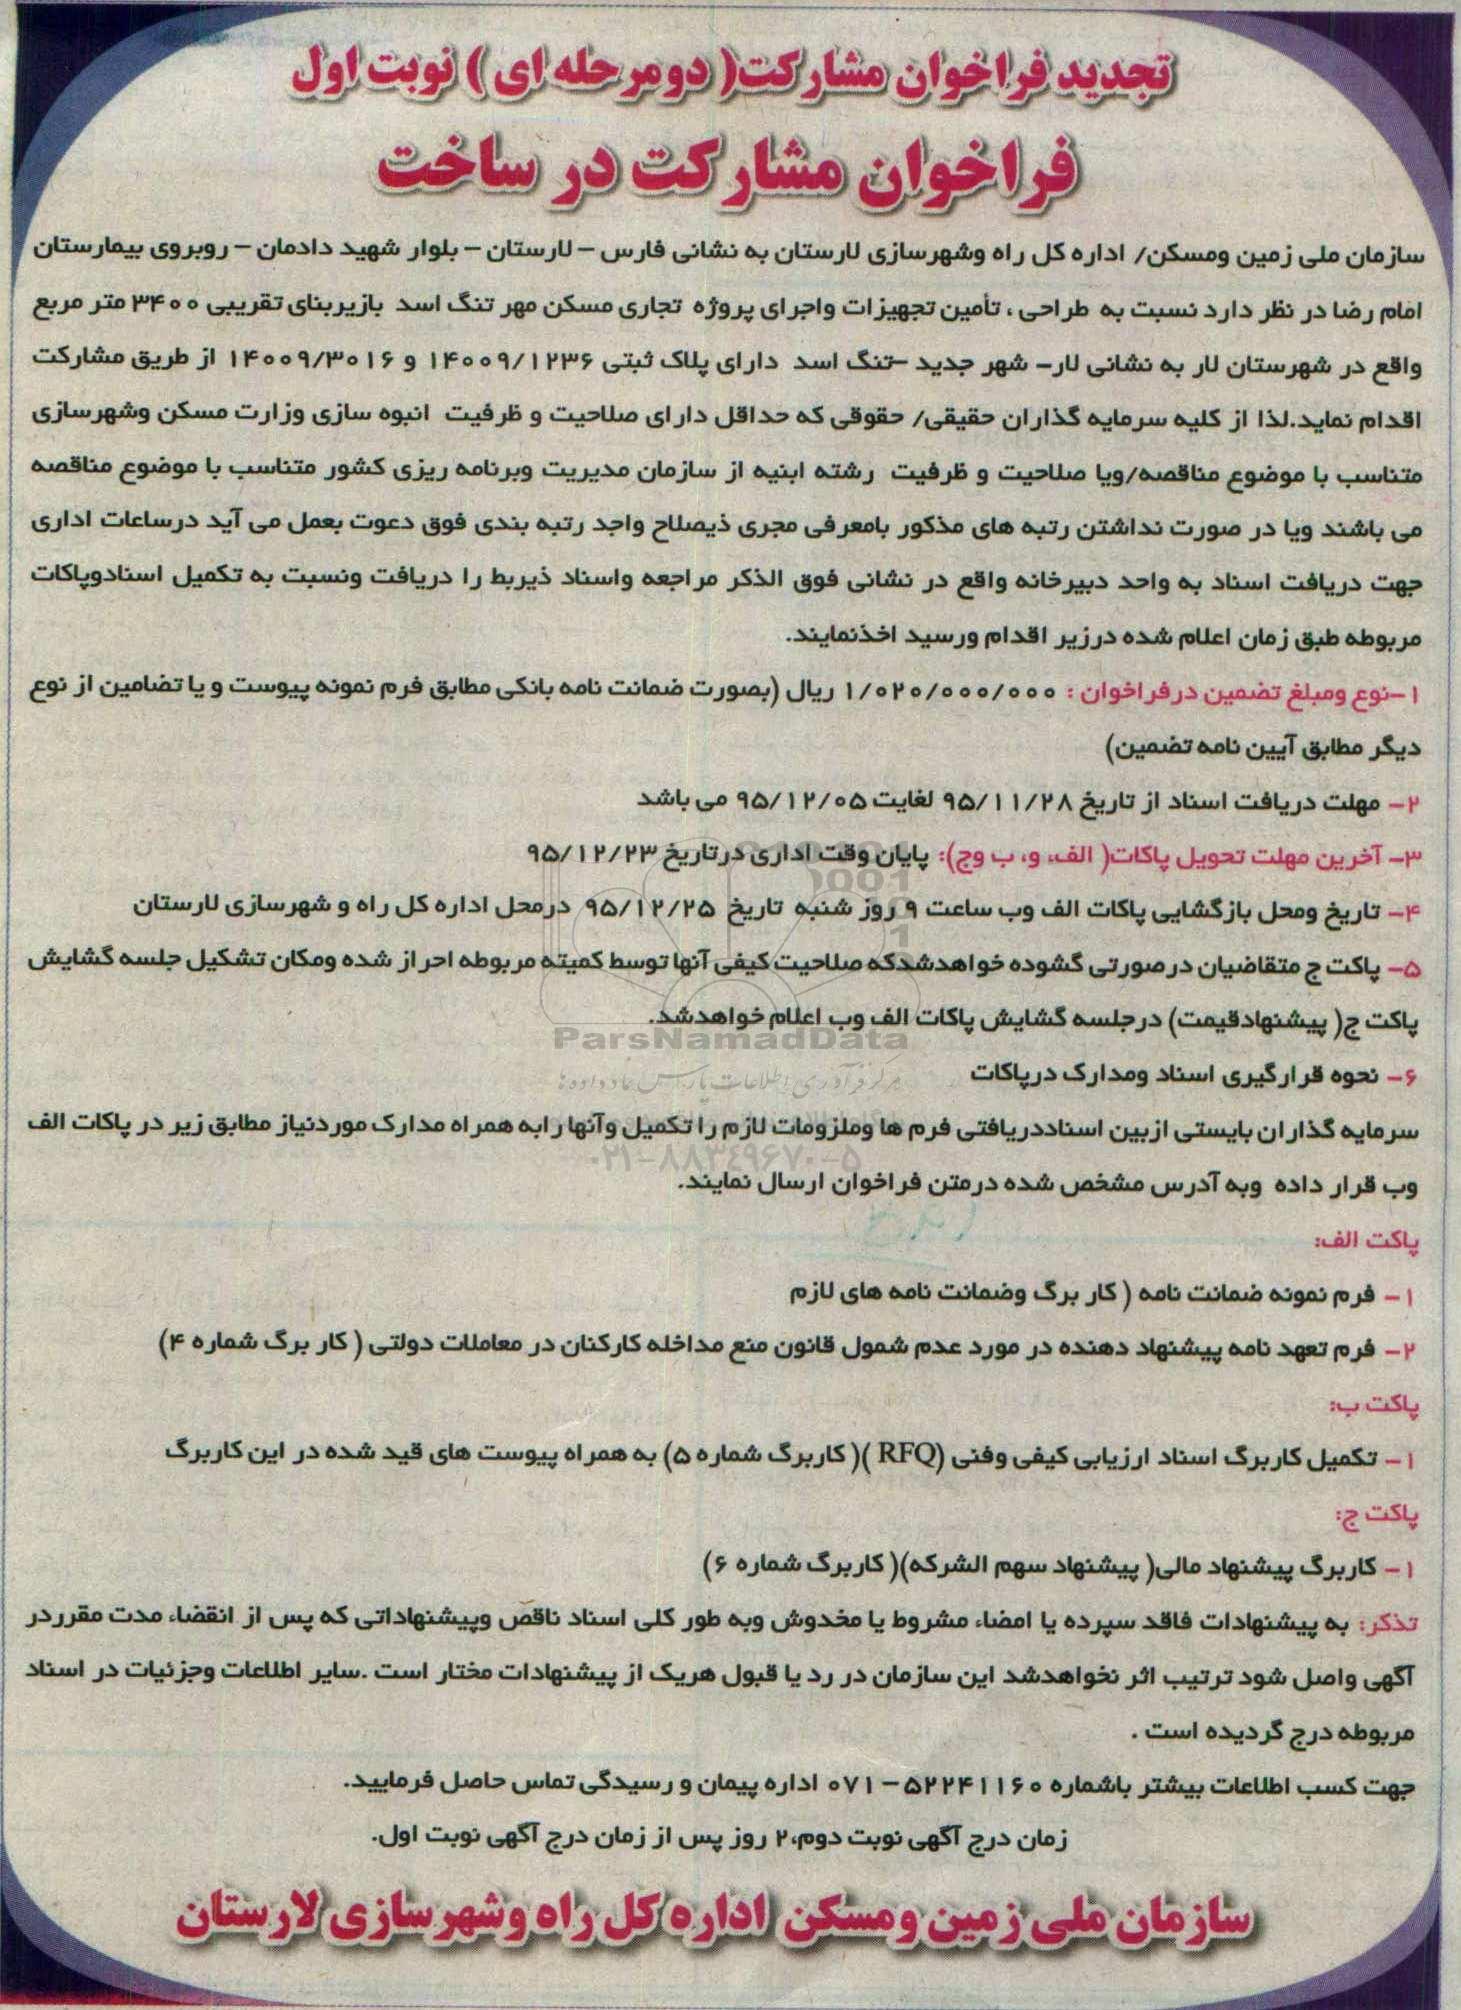 تجدید فراخوان مشارکت( دومرحله ای ) نوبت اول
فراخوان مشارکت در ساخت
سازمان ملی زمین ومسکن/ اداره کل راه وشهرسازی لارستان به نشانی فارس – لارستان – بلوار شهید دادمان – روبروی بیمارستان
امام رضا در نظر دارد نسبت به طراحی ، تأمین تجهیزات واجرای پروژه تجاری مسکن مهر تنگ اسد بازیربنای تقریبی ۳۴۰۰ متر مربع
واقع در شهرستان لار به نشانی لار– شهر جدید –تنگ اسد دارای پلاک ثبتی ۱۴۰۰۹/۱۲۳۶ و ۱۴۰۰۹/۳۰۱۶ از طریق مشارکت
اقدام نماید.لذا از کلیه سرمایه گذاران حقیقی/ حقوقی که حداقل دارای صلاحیت و ظرفیت انبوه سازی وزارت مسکن وشهرسازی
متناسب با موضوع مناقصه/ویا صلاحیت و ظرفیت رشته ابنیه از سازمان مدیریت وبرنامه ریزی کشور متناسب با موضوع مناقصه
می باشند ویا در صورت نداشتن رتبه های مذکور بامعرفی مجری ذیصلاح واجد رتبه بندی فوق دعوت بعمل می آید درساعات اداری
جهت دریافت اسناد به واحد دبیرخانه واقع در نشانی فوق الذکر مراجعه واسناد ذیربط را دریافت ونسبت به تکمیل اسنادوپاکات
مربوطه طبق زمان اعلام شده درزیر اقدام ورسید اخذنمایند.
۱–نوع ومبلغ تضمین درفراخوان : ۱/۰۲۰/۰۰۰/۰۰۰ ریال (بصورت ضمانت نامه بانکی مطابق فرم نمونه پیوست و یا تضامین از نوع
دیگر مطابق آیین نامه تضمین)
۲– مهلت دریافت اسناد از تاریخ ۹۵/۱۱/۲۸ لغایت ۹۵/۱۲/۰۵ می باشد
۳– آخرین مهلت تحویل پاکات( الف، و، ب وج): پایان وقت اداری درتاریخ ۹۵/۱۲/۲۳
۴– تاریخ ومحل بازگشایی پاکات الف وب ساعت ۹ روز شنبه تاریخ ۹۵/۱۲/۲۵ درمحل اداره کل راه و شهرسازی لارستان
۵– پاکت ج متقاضیان درصورتی گشوده خواهدشدکه صلاحیت کیفی آنها توسط کمیته مربوطه احراز شده ومکان تشکیل جلسه گشایش
پاکت ج( پیشنهادقیمت) درجلسه گشایش پاکات الف وب اعلام خواهدشد.
ParsNamadData
مرکز فرآوری اطلاعات پارس نماد داده ها
۶– نحوه قرارگیری اسناد ومدارک درپاکات
سرمایه گذاران بایستی ازبین اسناددریافتی فرم ها وملزومات لازم را تکمیل وآنها رابه همراه مدارک موردنیاز مطابق زیر در پاکات الف
۰۲۱-۸۸۳۴۹۶۷۰-۵
وب قرار داده وبه آدرس مشخص شده درمتن فراخوان ارسال نمایند.
پاکت الف:
۱– فرم نمونه ضمانت نامه ( کار برگ وضمانت نامه های لازم
۲– فرم تعهد نامه پیشنهاد دهنده در مورد عدم شمول قانون منع مداخله کارکنان در معاملات دولتی ( کار برگ شماره ۴)
پاکت ب:
۱– تکمیل کاربرگ اسناد ارزیابی کیفی وفنی (RFQ )( کاربرگ شماره ۵) به همراه پیوست های قید شده در این کاربرگ
پاکت ج:
۱– کاربرگ پیشنهاد مالی( پیشنهاد سهم الشرکه)( کاربرگ شماره ۶)
تذکر: به پیشنهادات فاقد سپرده یا امضاء مشروط یا مخدوش وبه طور کلی اسناد ناقص وپیشنهاداتی که پس از انقضاء مدت مقرردر
آگهی واصل شود ترتیب اثر نخواهدشد این سازمان در رد یا قبول هریک از پیشنهادات مختار است .سایر اطلاعات وجزئیات در اسناد
مربوطه درج گردیده است .
جهت کسب اطلاعات بیشتر باشماره ۵۲۲۴۱۱۶۰–۰۷۱ اداره پیمان و رسیدگی تماس حاصل فرمایید.
زمان درج آگهی نوبت دوم،۲ روز پس از زمان درج آگهی نوبت اول.
سازمان ملی زمین ومسکن اداره کل راه وشهرسازی لارستان